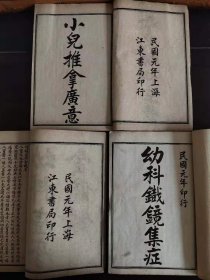 小兒推拿廣意
民國元年上海
江東書局印行
民國元年上海
江東書局印行
幼科鐵鏡集症
民國元年印行